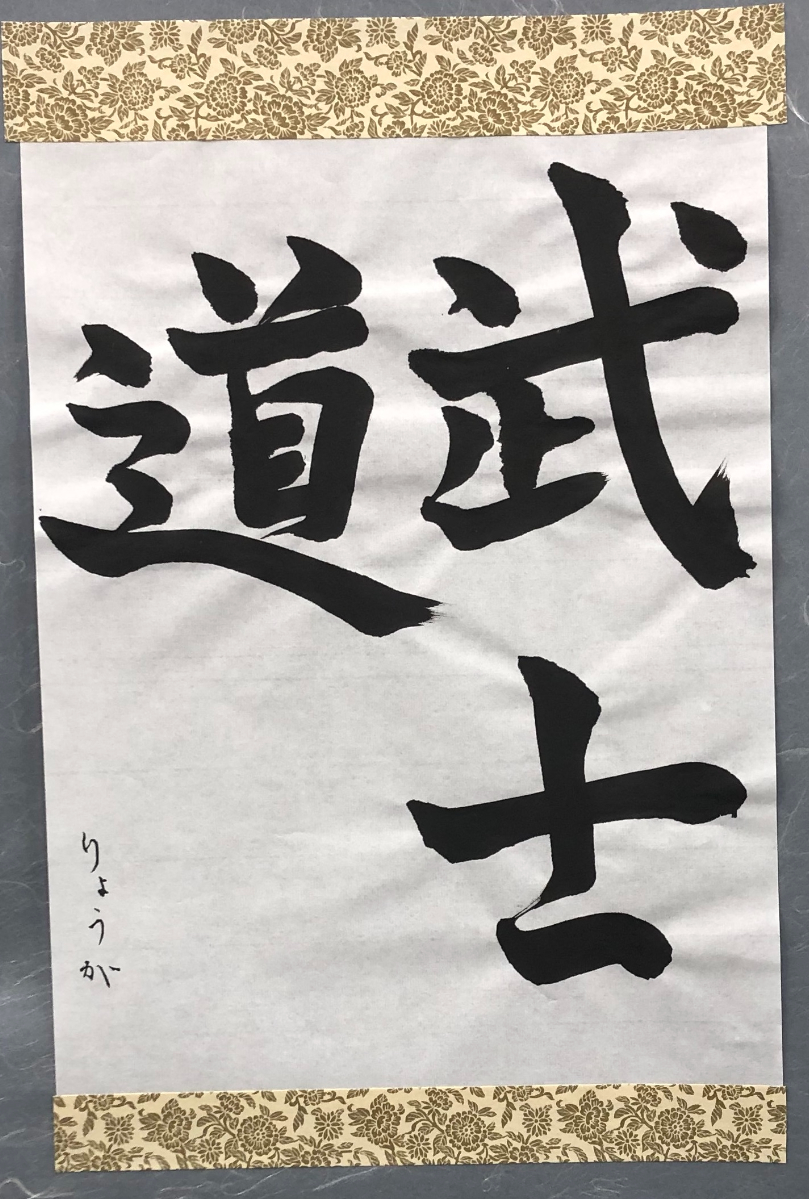 武士
道
りょうが